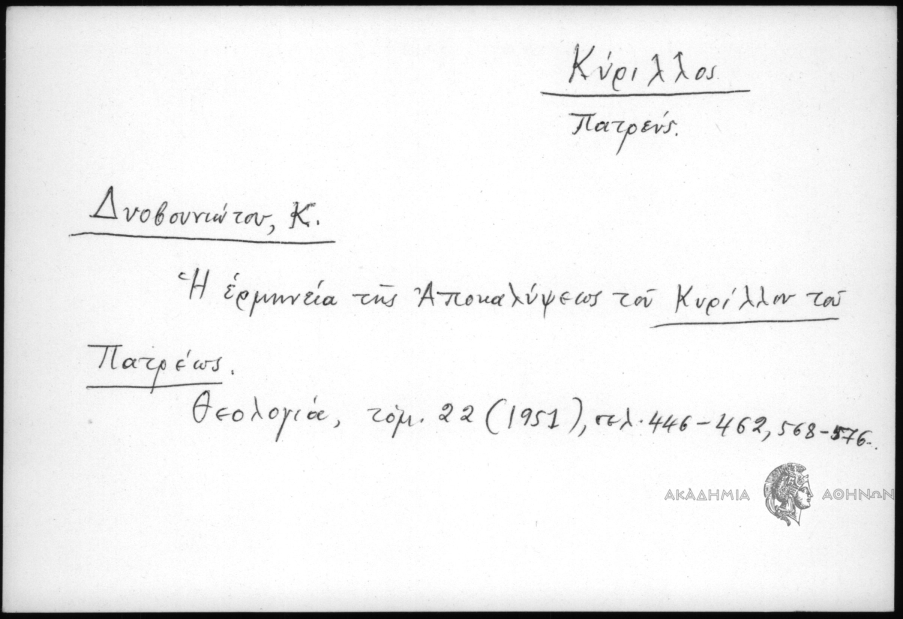 Κύριλλος
Πατρεύς.
Δυοβουνιώτου, Κ.
Ἡ ἑρμηνεία τῆς Ἀποκαλύψεως τοῦ Κυρίλλου τοῦ
Πατρέως.
Θεολογιά, τόμ. 22 (1951), σελ. 446-462, 568-576.
ΑΚΑΔΗΜΙΑ ΑΘΗΝΩΝ